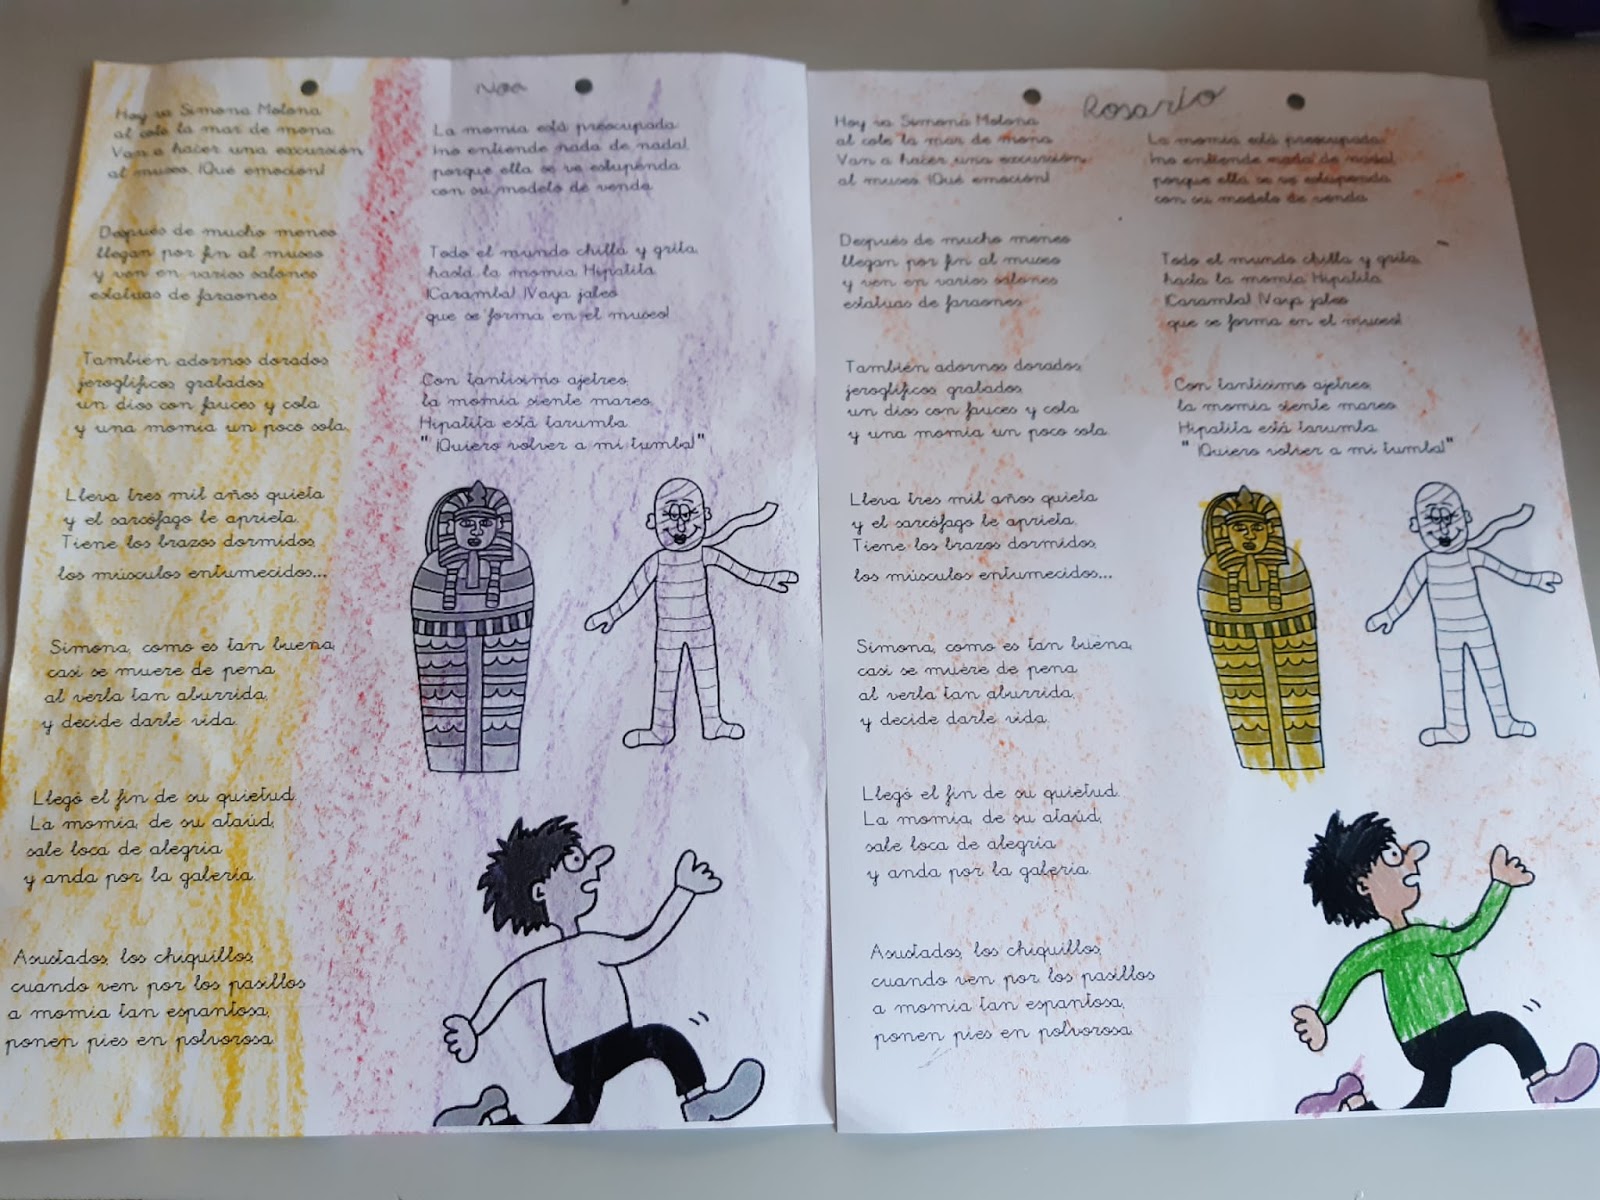 Noa
Hoy va Simona Molona
al cole la mar de mona.
Van a hacer una excursión
al museo. ¡Qué emoción!
Después de mucho meneo
llegan por fin al museo
y ven en varios salones
estatuas de faraones.
También adornos dorados,
jeroglíficos grabados
un dios con fauces y cola
y una momia un poco sola.
Lleva tres mil años quieta
y el sarcófago le aprieta.
Tiene los brazos dormidos,
los músculos entumecidos...
Simona, como es tan buena,
casi se muere de pena
al verla tan aburrida,
y decide darle vida.
Llegó el fin de su quietud.
La momia, de su ataúd,
sale loca de alegría
y anda por la galería.
Asustados, los chiquillos,
cuando ven por los pasillos
a momia tan espantosa,
ponen pies en polvorosa.
La momia está preocupada
¡no entiende nada de nada!,
porque ella se ve estupenda
con su modelo de venda.
Todo el mundo chilla y grita,
hasta la momia Hipatita.
¡Caramba! ¡Vaya jaleo
que se forma en el museo!
Con tantísimo ajetreo,
la momia siente mareo.
Hipatita está tarumba.
"¡Quiero volver a mi tumba!"
Rosario
Hoy va Simona Molona
al cole la mar de mona.
Van a hacer una excursión
al museo. ¡Qué emoción!
Después de mucho meneo
llegan por fin al museo
y ven en varios salones
estatuas de faraones.
También adornos dorados,
jeroglíficos grabados,
un dios con fauces y cola
y una momia un poco sola.
Lleva tres mil años quieta
y el sarcófago le aprieta.
Tiene los brazos dormidos,
los músculos entumecidos...
Simona, como es tan buena,
casi se muere de pena
al verla tan aburrida,
y decide darle vida.
Llegó el fin de su quietud.
La momia, de su ataúd,
sale loca de alegría
y anda por la galería.
Asustados, los chiquillos,
cuando ven por los pasillos
a momia tan espantosa,
ponen pies en polvorosa.
La momia está preocupada
¡no entiende nada de nada!,
porque ella se ve estupenda
con su modelo de venda.
Todo el mundo chilla y grita,
hasta la momia Hipatita.
¡Caramba! ¡Vaya jaleo
que se forma en el museo!
Con tantísimo ajetreo,
la momia siente mareo.
Hipatita está tarumba.
"¡Quiero volver a mi tumba!"